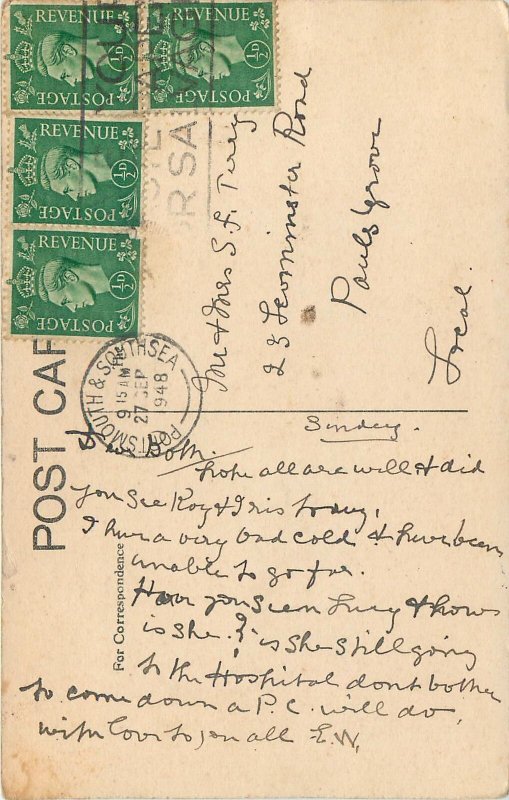 REVENUE
½D
POSTAGE
REVENUE
½D
POSTAGE
REVENUE
½D
POSTAGE
REVENUE
½D
POSTAGE
PORTSMOUTH & SOUTHSEA
9 15 AM
27 SEP
1948
POST CAR
For Correspondence
Mr & Mrs S. F.
23 Leominster Road
Pauls grove
Local.
Sunday.
Dear Both.
hope all are well & did
you see Roy & Iris today,
I have a very bad cold & have been
unable to go far.
Have you seen Lucy & hows
is she? is she still going
to the Hospital dont bother
to come down a P.C. will do,
with love to you all E.W.